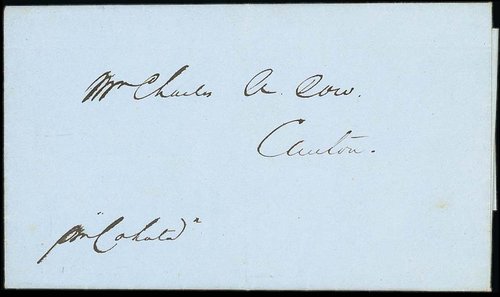 Mr Charles A. Dow.
Canton.
pr "Cohota"